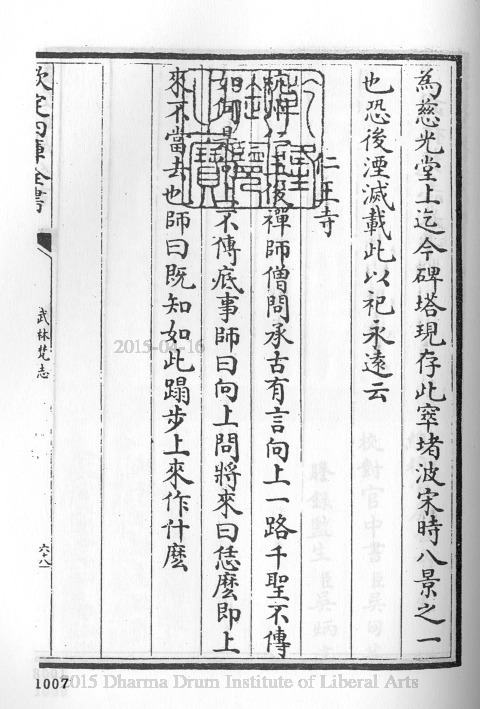 為慈光堂上迄今碑塔現存此窣堵波宋時八景之一
也恐後湮滅載此以祀永遠云
仁王寺
杭州仁王俊禪師僧問承古有言向上一路千聖不傳
如何是向上不傳底事師曰向上問將來曰恁麼即上
來不當去也師曰既知如此蹋步上來作什麼
欽定四庫全書
武林梵志
六十八
2015-04-16
1007
2015 Dharma Drum Institute of Liberal Arts